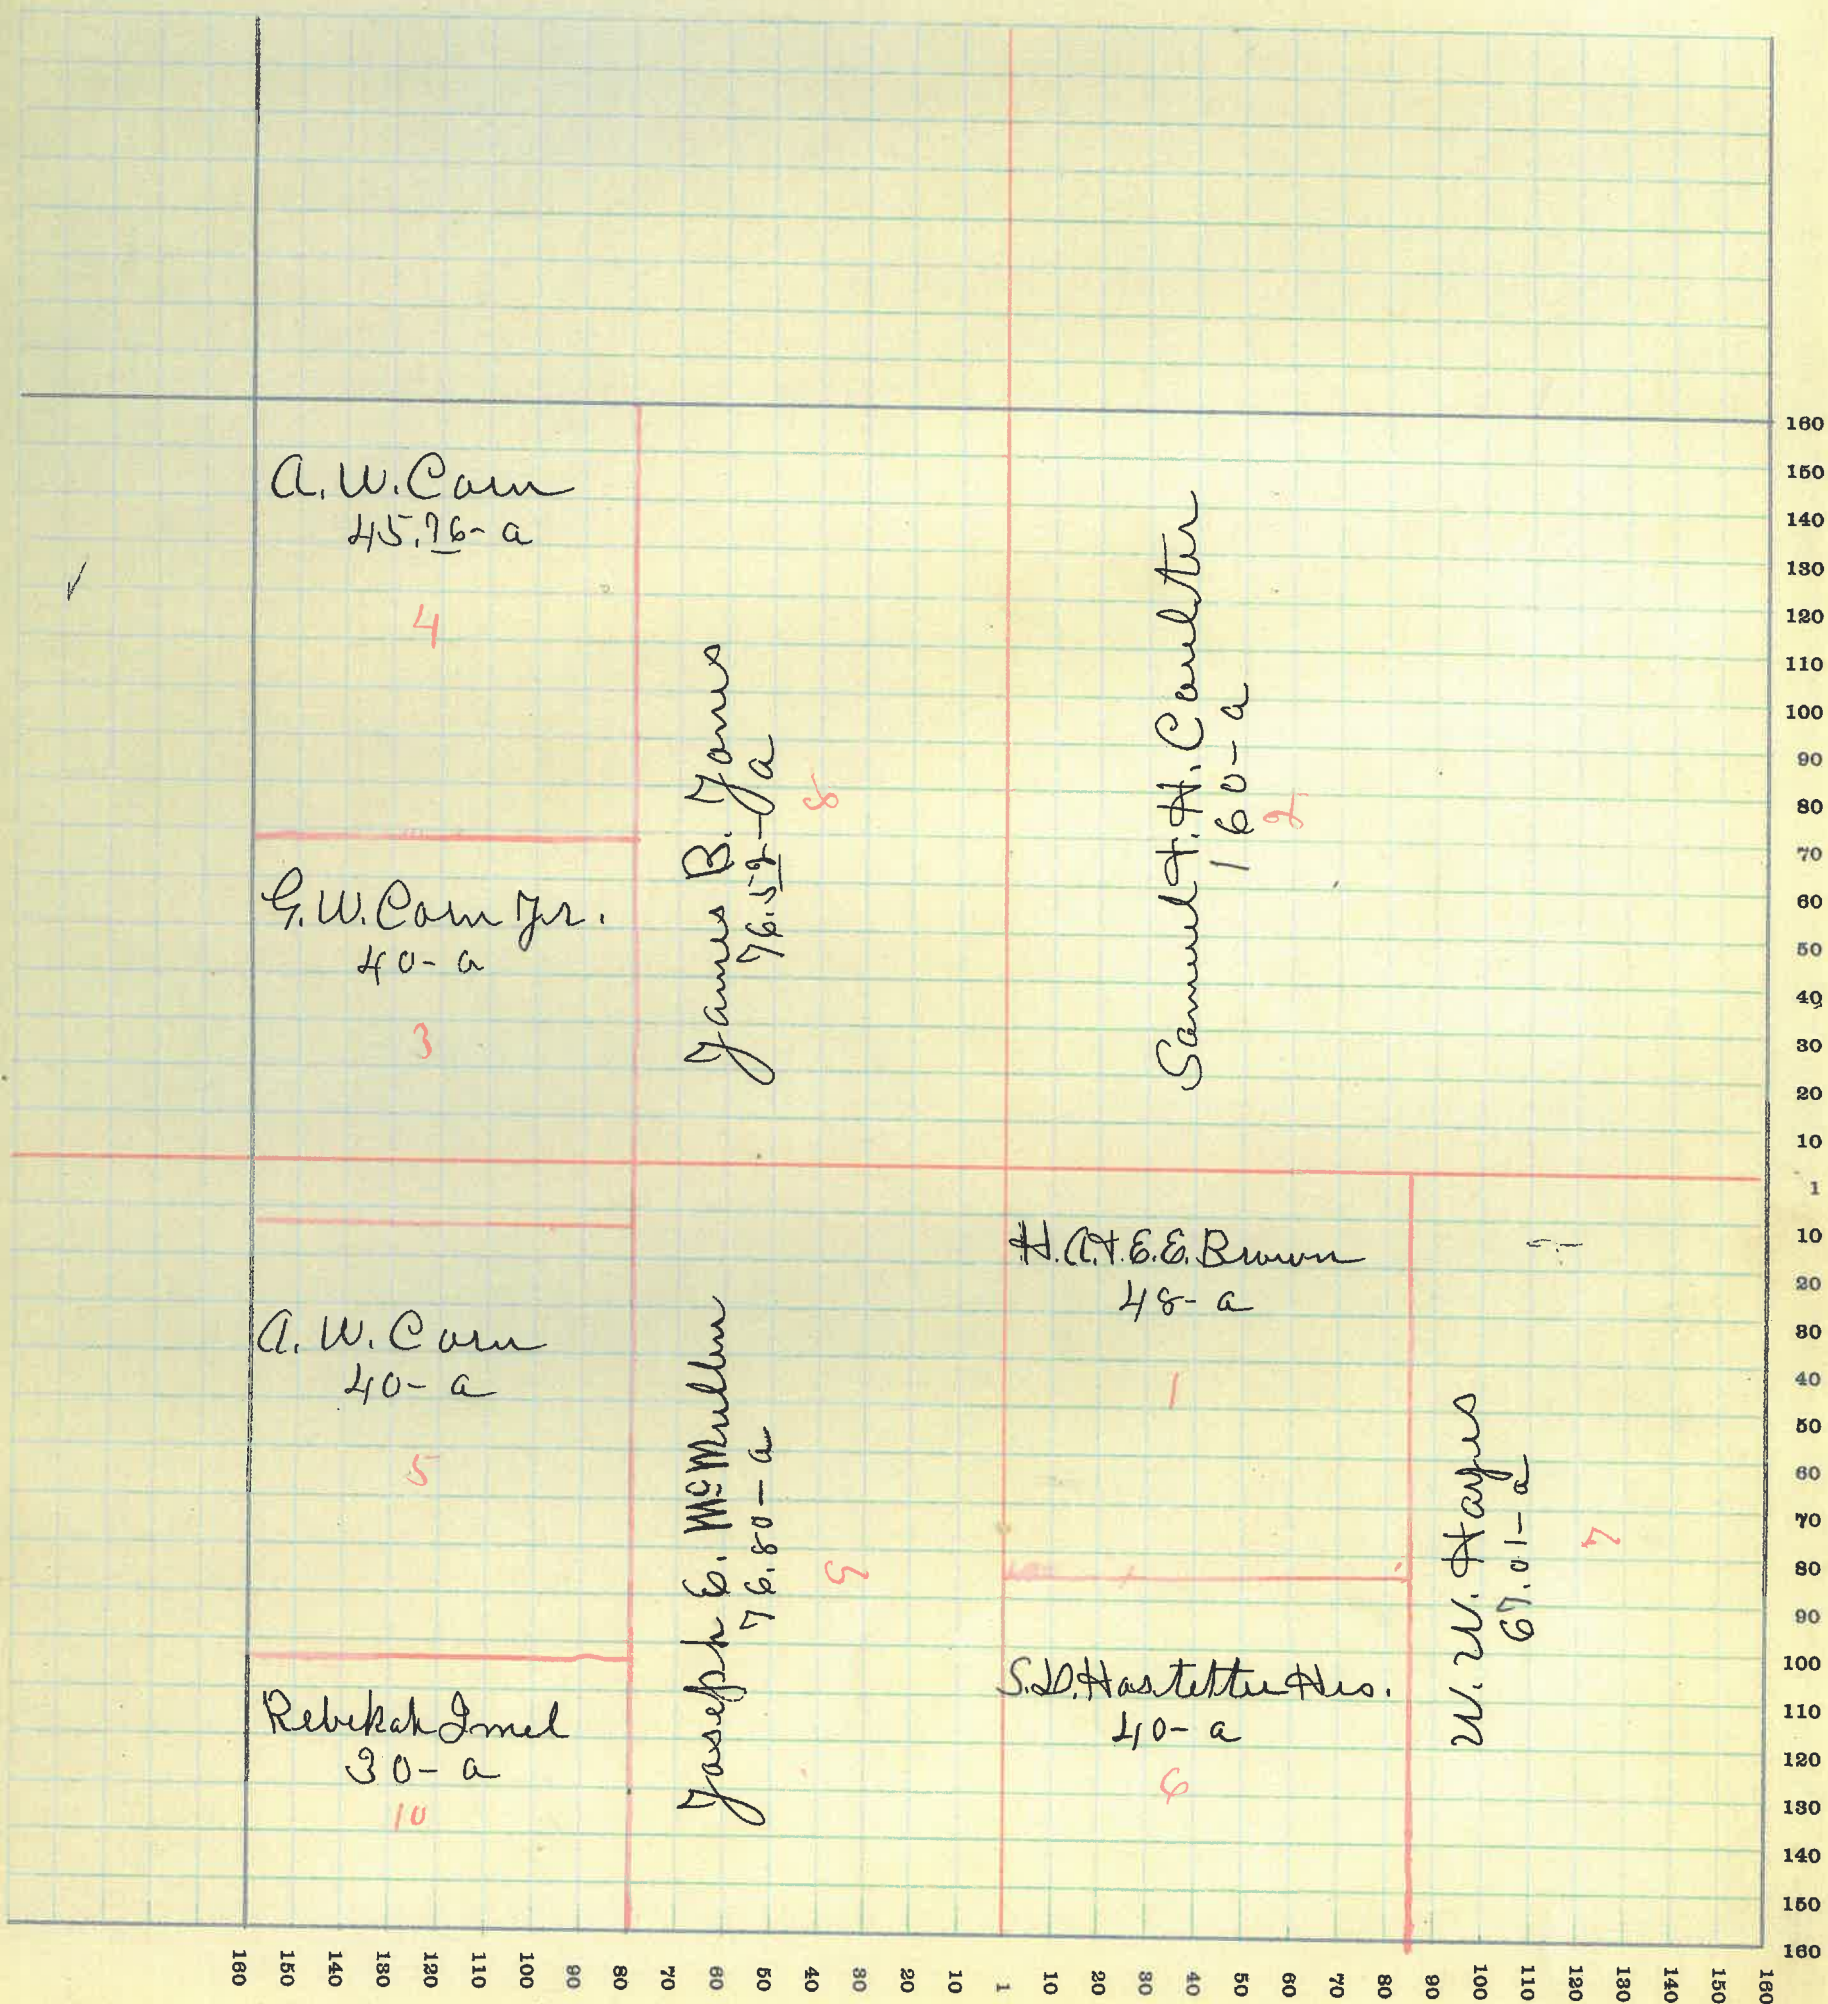 A. W. Corn
45.76-a
4
G. W. Corn Jr.
40-a
3
James B. Jones
76.52-a
8
Samuel H. H. Coulter
160-a
2
A. W. Corn
40-a
5
Rebekah Imel
30-a
10
Joseph E. McMullen
76.80-a
9
H. A. & E. E. Brown
48-a
1
S. D. Hostetter Hrs.
40-a
6
W. W. Hayes
67.01-a
7
160
150
140
130
120
110
100
90
80
70
60
50
40
30
20
10
1
10
20
30
40
50
60
70
80
90
100
110
120
130
140
150
160
160 150 140 130 120 110 100 90 80 70 60 50 40 30 20 10 1 10 20 30 40 50 60 70 80 90 100 110 120 130 140 150 160